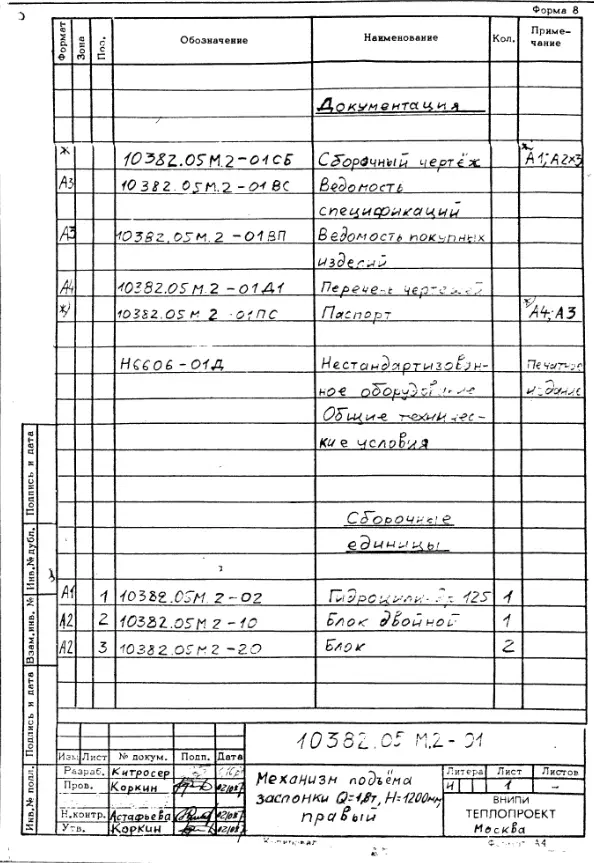 Форма 8
Формат Зона Поз. Обозначение Наименование Кол. Приме-
чание
Документация
* 10382.05М.2-01СБ Сборочный чертёж *) А1; А2х3
А3 10382.05М.2-01ВС Ведомость
спецификаций
А3 10382.05М.2-01ВП Ведомость покупных
изделий
А4 10382.05М.2-01Д1 Перечень чертежей
*) 10382.05М.2-01ПС Паспорт *) А4; А3
Н6606-01Д Нестандартизован-
ное оборудование издание
Общие техничес-
кие условия
Сборочные
единицы
А1 1 10382.05М.2-02 125 1
А2 2 10382.05М2-10 Блок двойной 1
А2 3 10382.05М2-20 Блок 2
Подпись и дата
Инв.№ дубл.
Взам.инв. №
Подпись и дата
Инв.№ подл.
10382.05 М.2-01
Изм Лист № докум. Подп. Дата
Разраб. Китросер
Пров. Коркин
Н.контр. Астафьева
Утв. Коркин
Механизм подъёма
заслонки Q=1,8т, H=1200мм,
правый
Литера Лист Листов
И 1 –
ВНИПИ
ТЕПЛОПРОЕКТ
Москва
А4